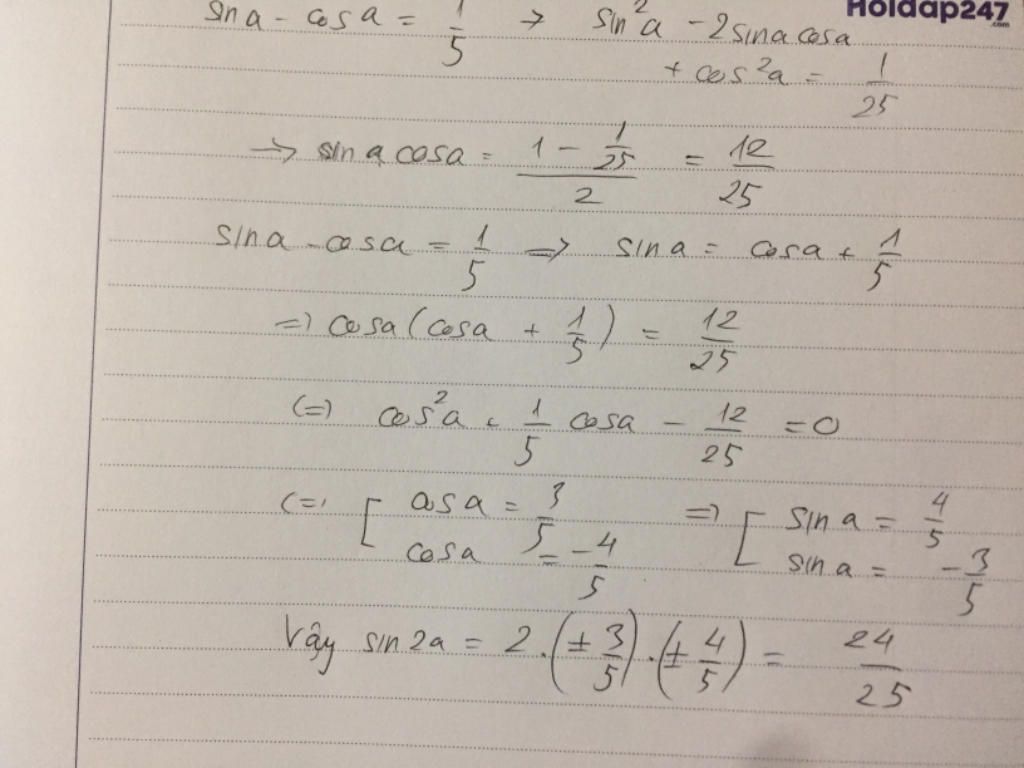 Hoidap247
.com
sina - cosa = 1/5 → sin²a - 2sina cosa
+ cos²a = 1/25
→ sina cosa = (1 - 1/25)/2 = 12/25
sina - cosa = 1/5 => sina = cosa + 1/5
=> cosa(cosa + 1/5) = 12/25
(=) cos²a + 1/5 cosa - 12/25 = 0
(=) [ cosa = 3/5 => [ sina = 4/5
cosa = -4/5 sina = -3/5
Vậy sin2a = 2.(±3/5).(±4/5) = 24/25